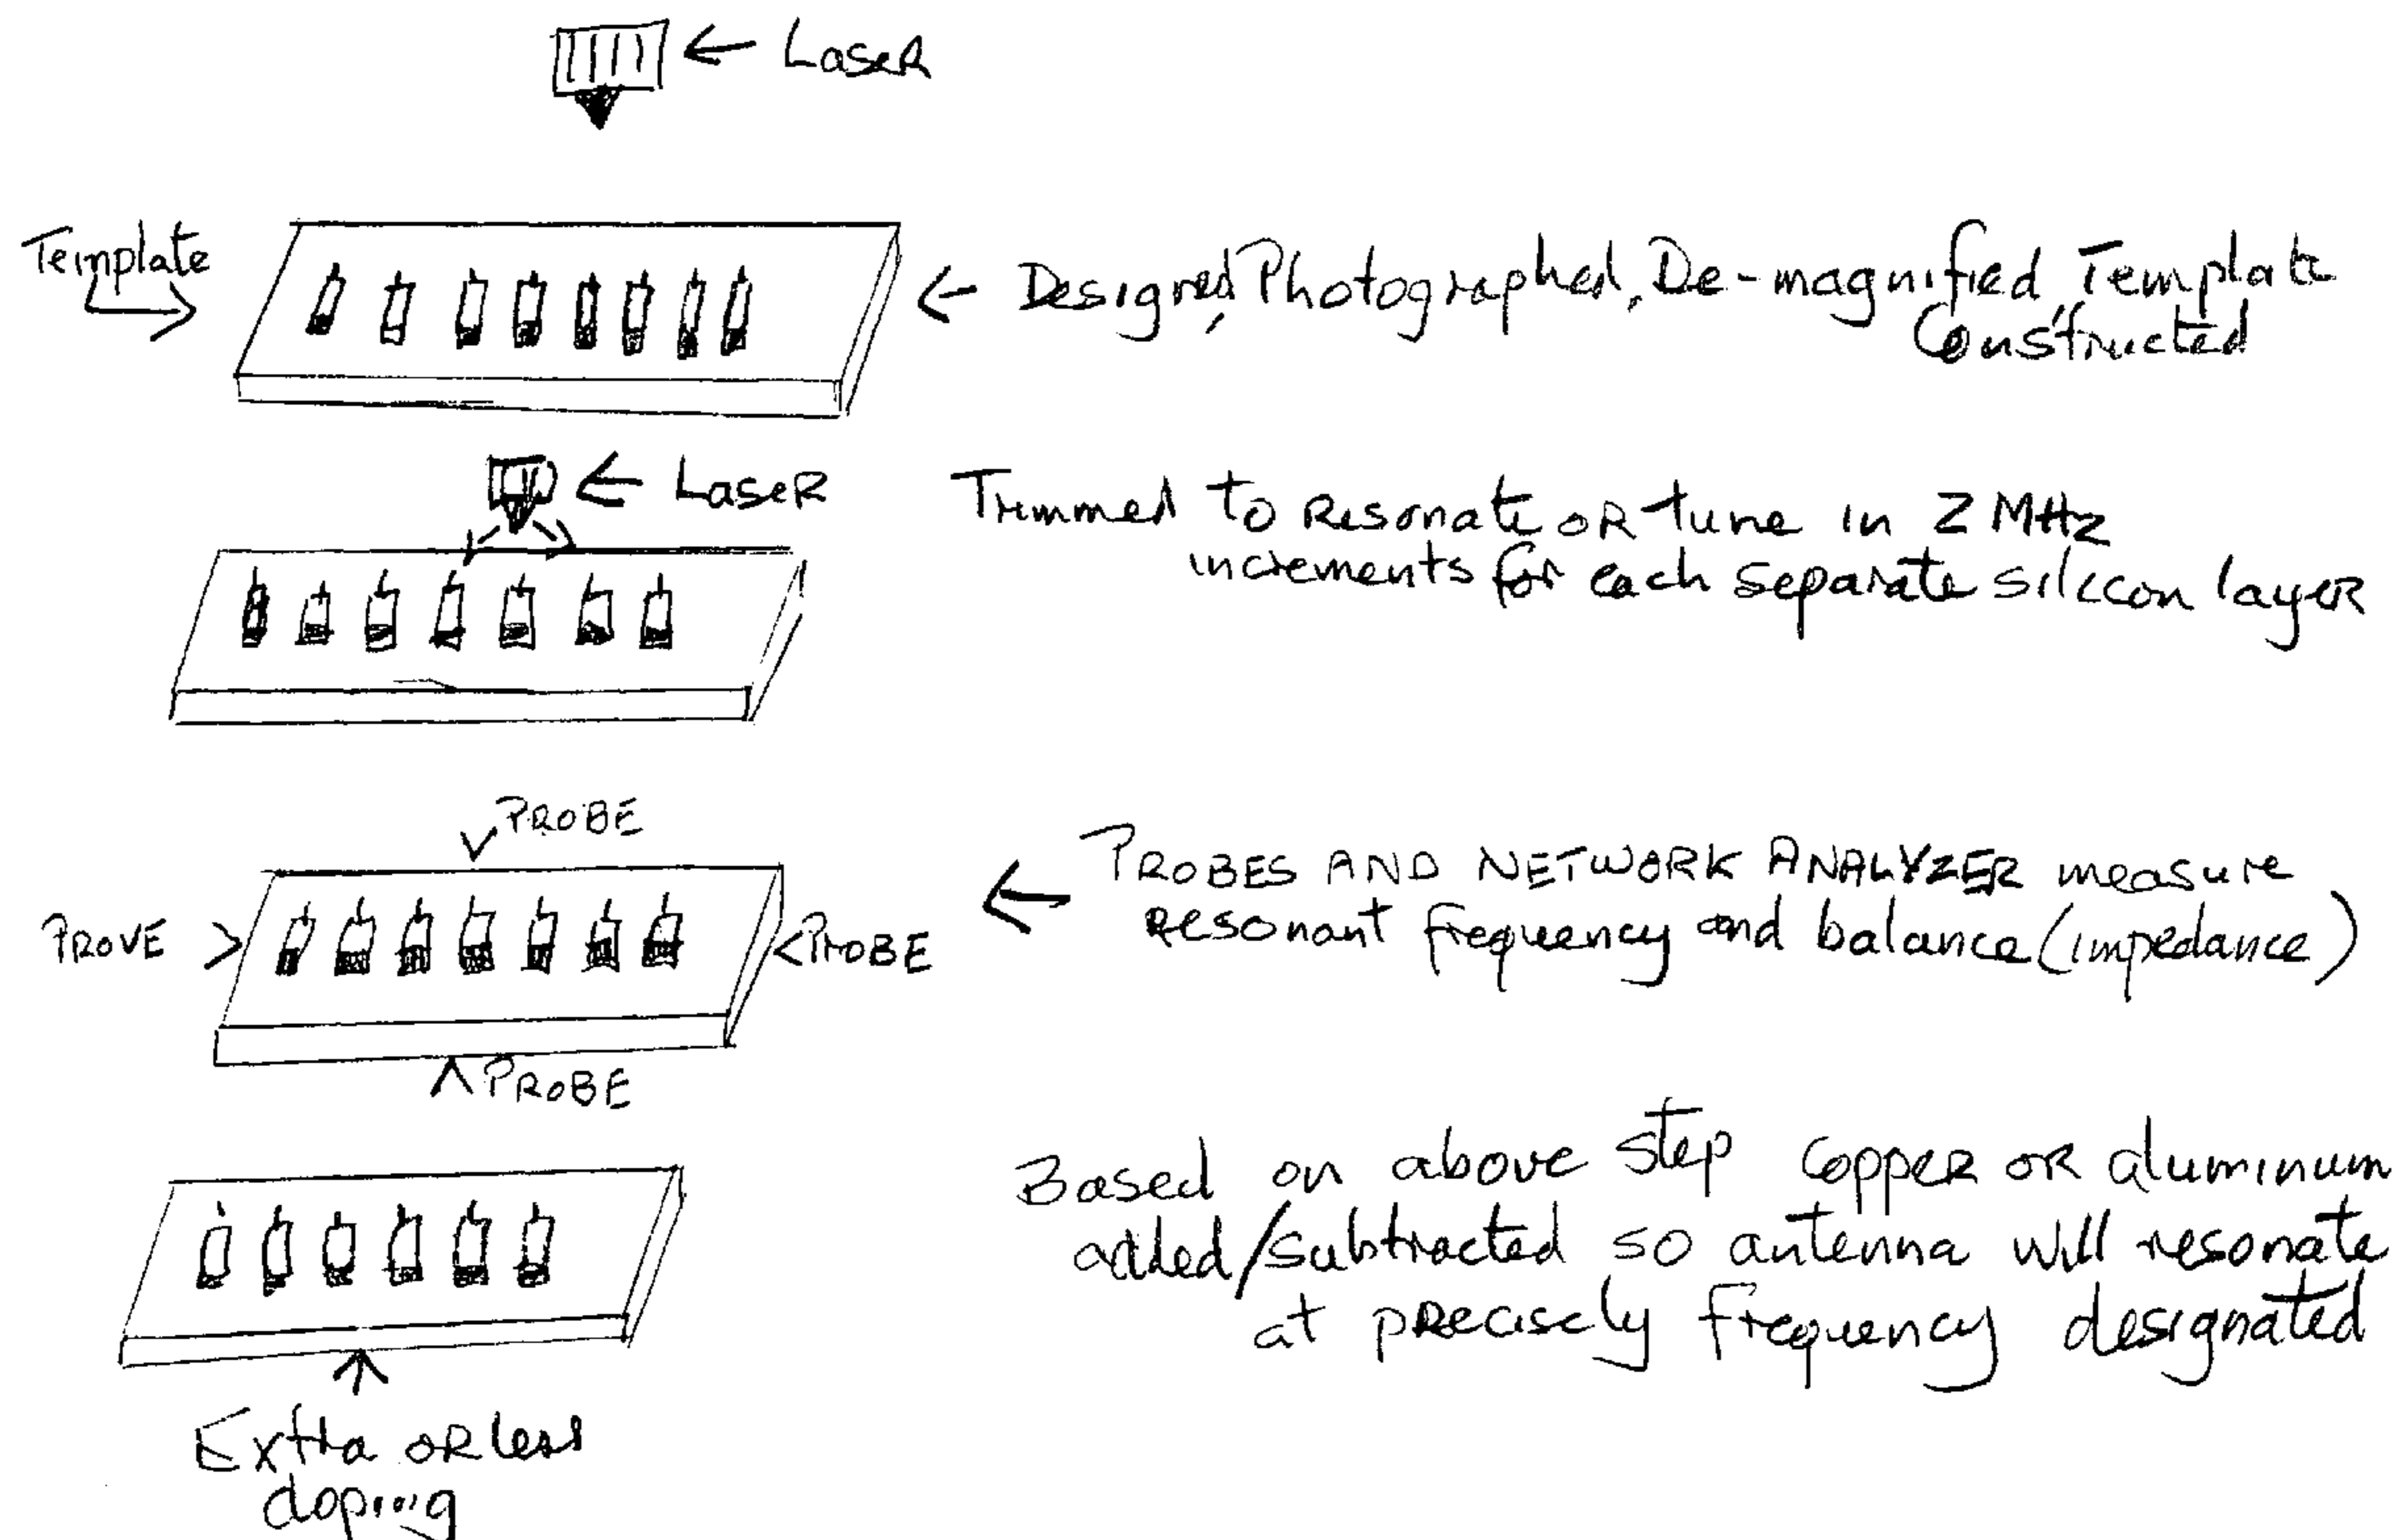 Laser
Template
Designed, Photographed, De-magnified, Template
Constructed
Laser
Trimmed to Resonate or tune in 2 MHz
increments for each separate silicon layer
PROBE
PROVE
PROBE
PROBES AND NETWORK ANALYZER measure
resonant frequency and balance (impedance)
PROBE
Based on above step copper or aluminum
added/subtracted so antenna will resonate
at precisely frequency designated
Extra or less
doping